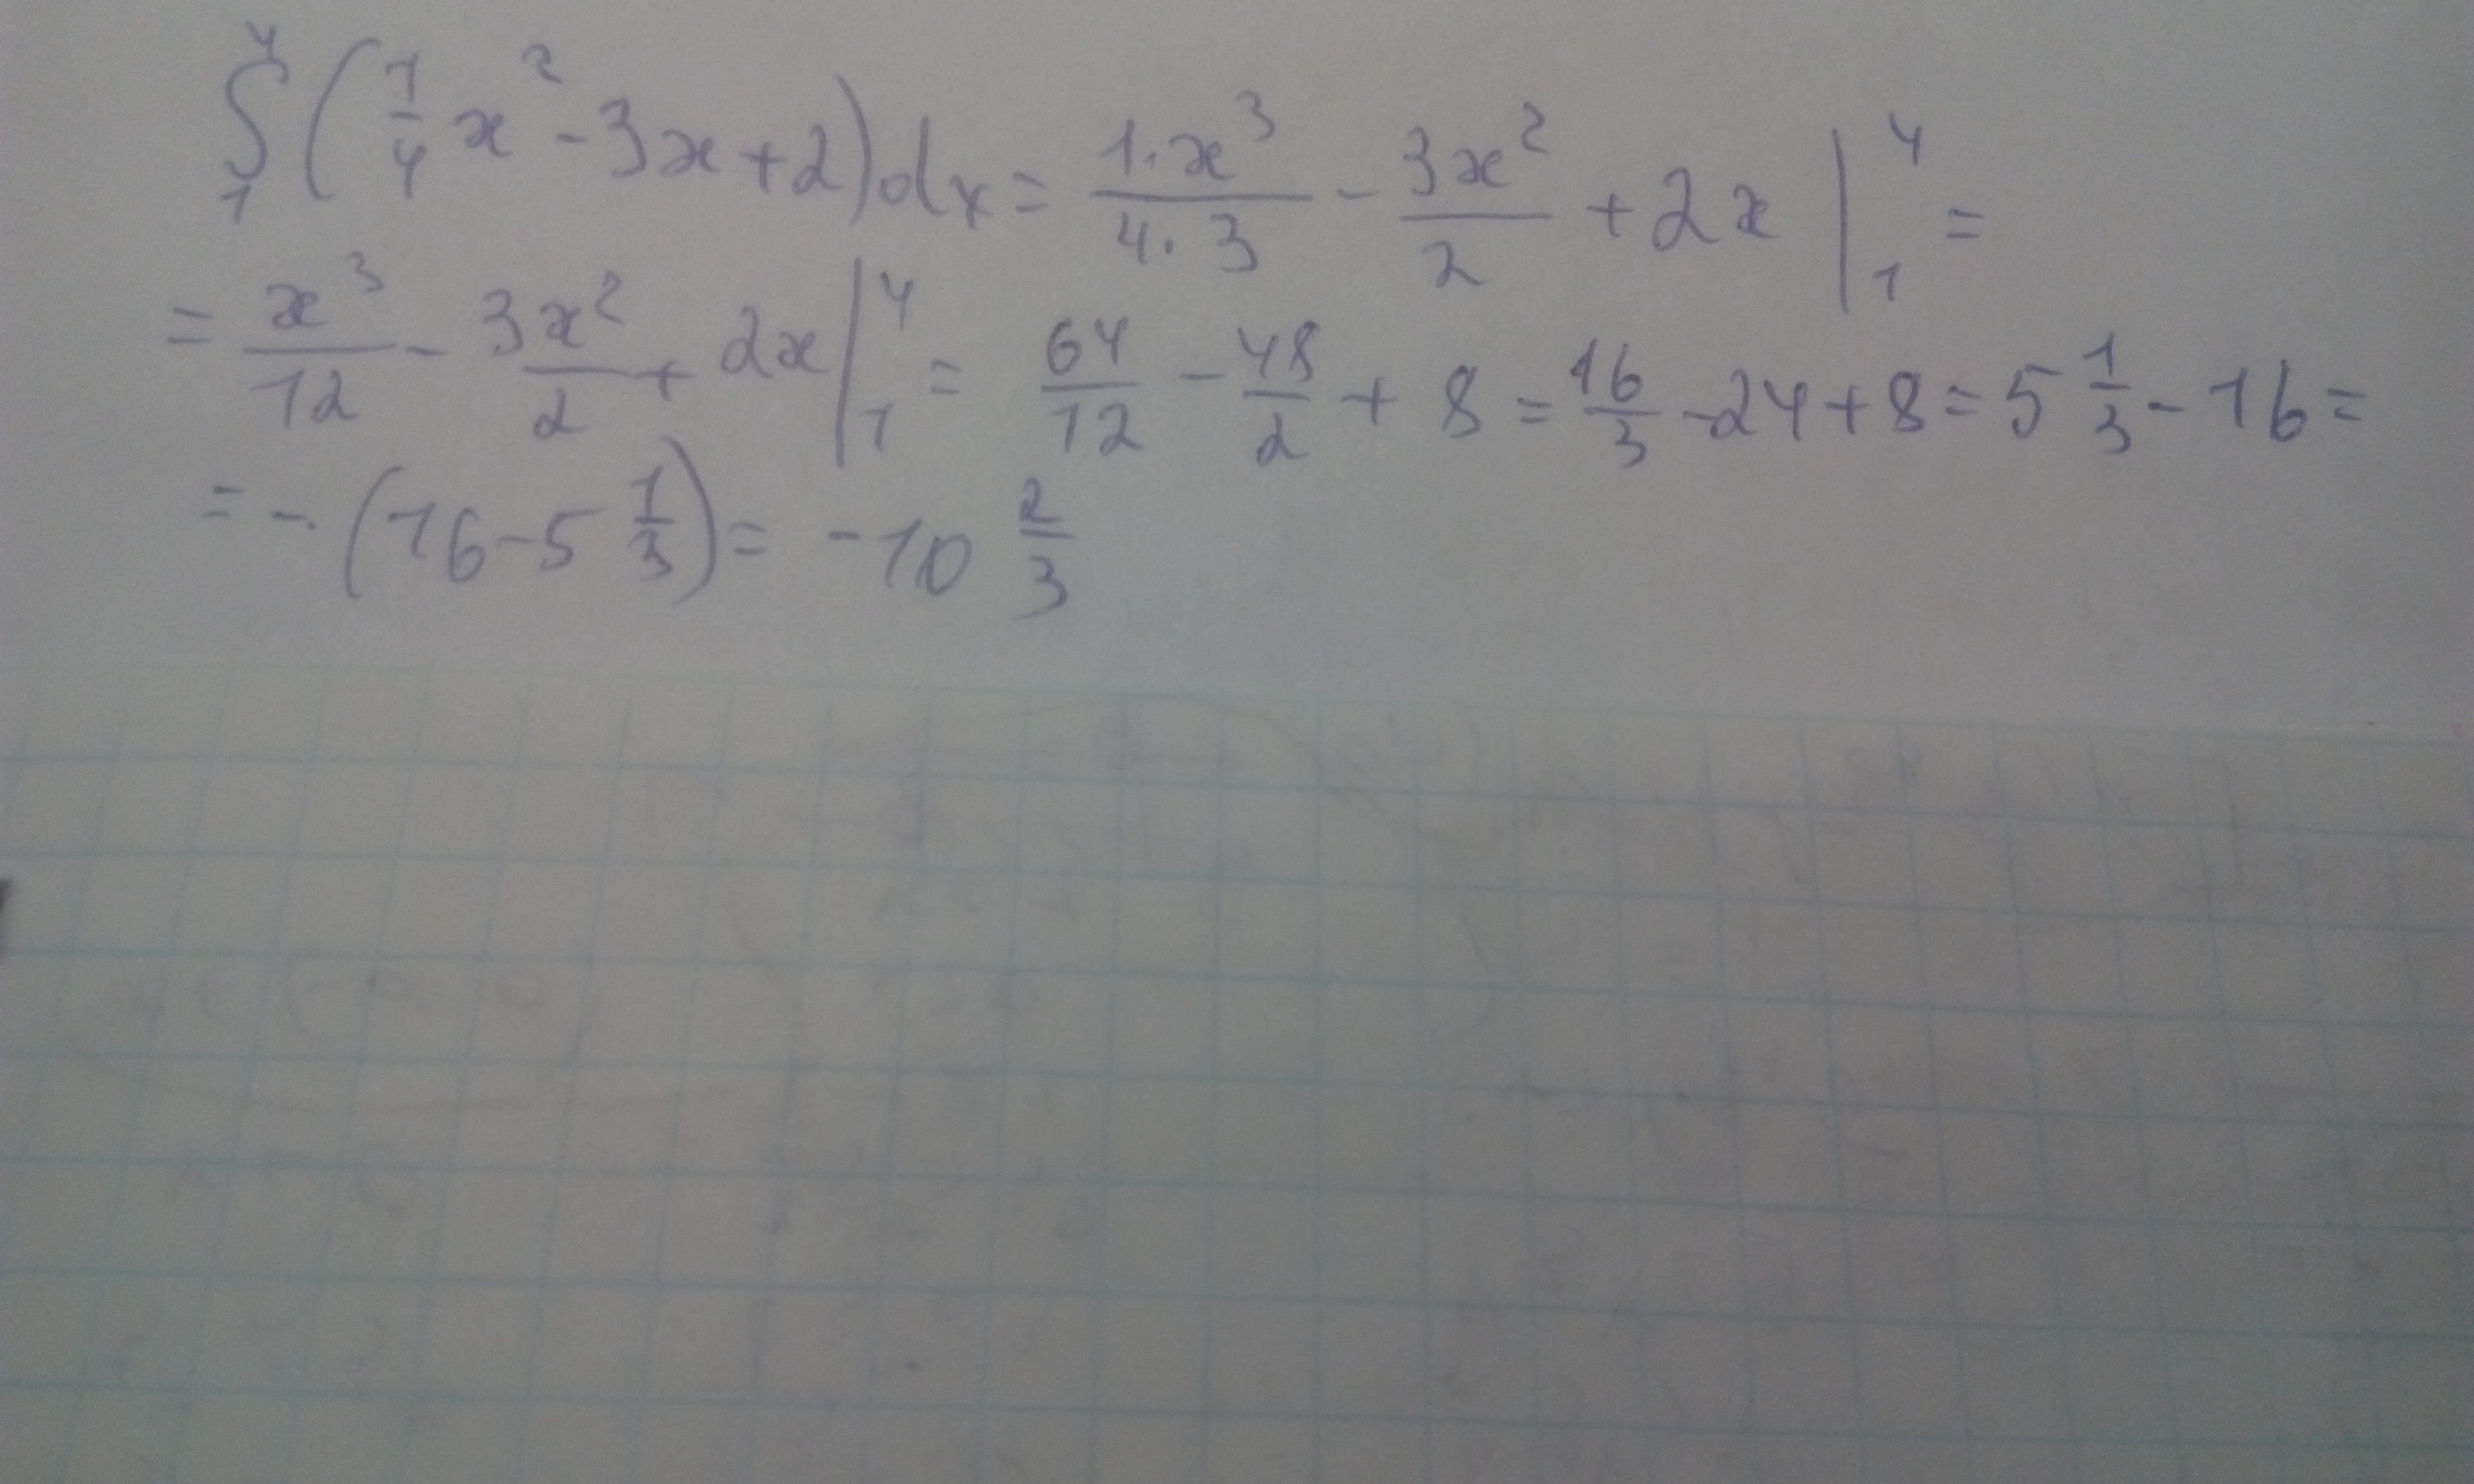 ∫₁⁴ (1/4 x² - 3x + 2) dx = 1·x³/4·3 - 3x²/2 + 2x |₁⁴ =
= x³/12 - 3x²/2 + 2x |₁⁴ = 64/12 - 48/2 + 8 = 16/3 - 24 + 8 = 5 1/3 - 16 =
= - (16 - 5 1/3) = - 10 2/3